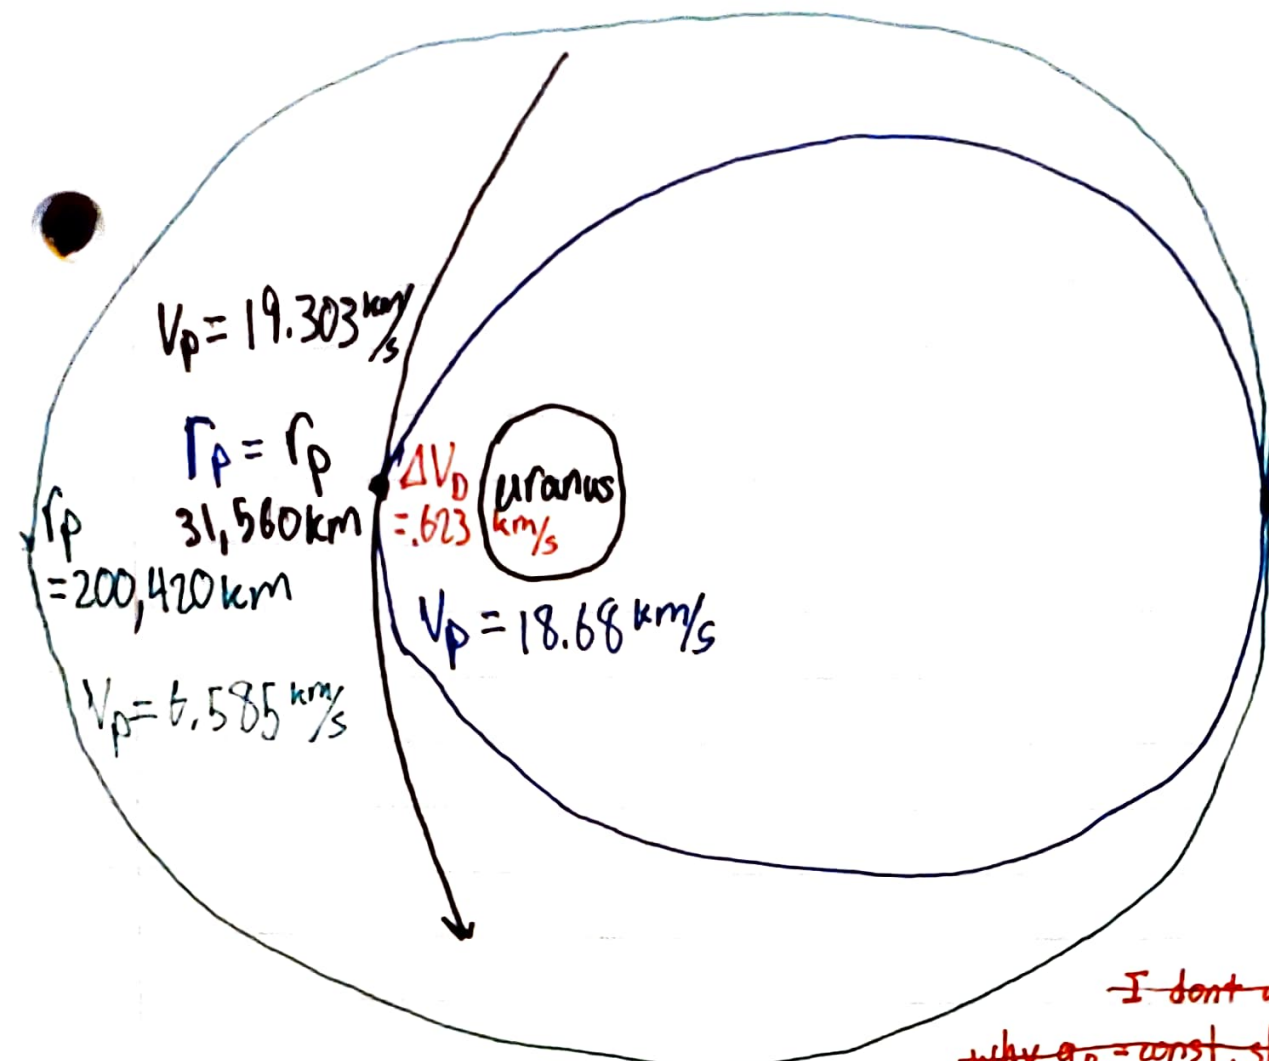 Vp = 19.303 km/s
rp = rp
31,560 km
ΔVD
= .623 km/s
uranus
rp
= 200,420 km
Vp = 18.68 km/s
Vp = 6.585 km/s
I dont
why
= const.